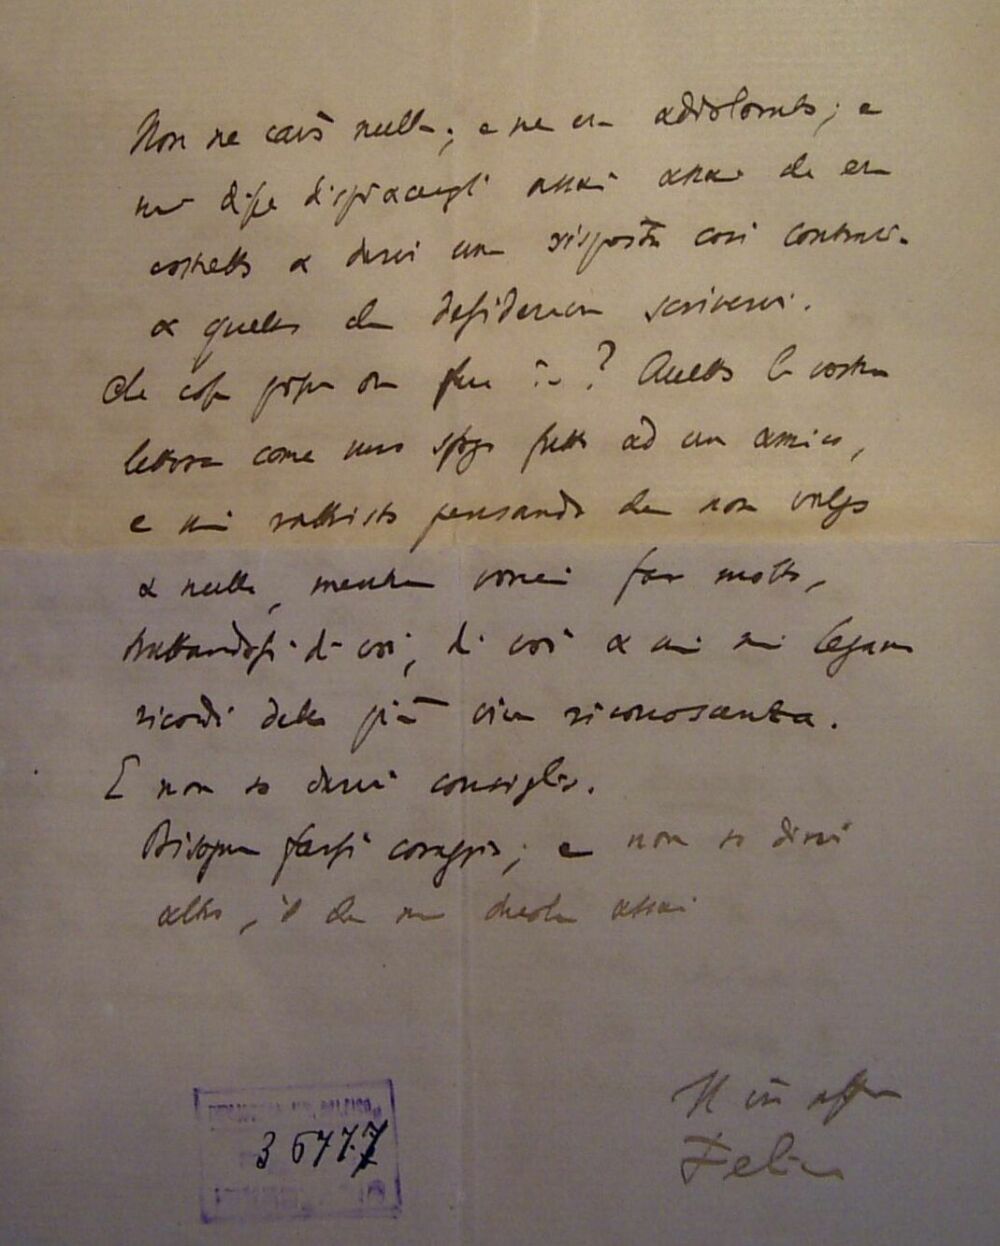 Non ne cavò nulla; e ne era addolorato; e
mi disse dispiacergli assai assai che era
costretto a darvi una risposta così contraria
a quella che desiderava scrivervi.
Che cosa posso ora fare io? Accetto la vostra
lettera come uno sfogo fatto ad un amico,
e mi rattristo pensando che non valgo
a nulla, mentre vorrei far molto,
trattandosi di voi, di voi a cui mi legano
ricordi della più viva riconoscenza.
E non so darvi consiglio.
Bisogna farsi coraggio; e non so dirvi
altro, il che me duole assai
Il
36777